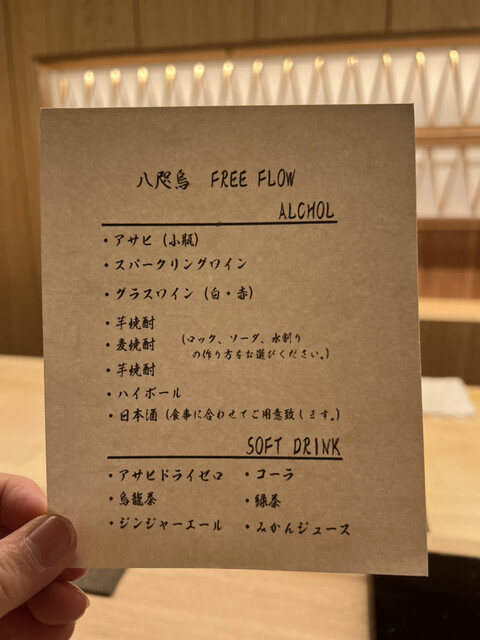 八咫烏 FREE FLOW
ALCHOL
・アサヒ（小瓶）
・スパークリングワイン
・グラスワイン（白・赤）
・芋焼酎
・麦焼酎
・芋焼酎
（ロック、ソーダ、水割り
の作り方をお選びください。）
・ハイボール
・日本酒（食事に合わせてご用意致します。）
SOFT DRINK
・アサヒドライゼロ ・コーラ
・烏龍茶 ・緑茶
・ジンジャーエール ・みかんジュース